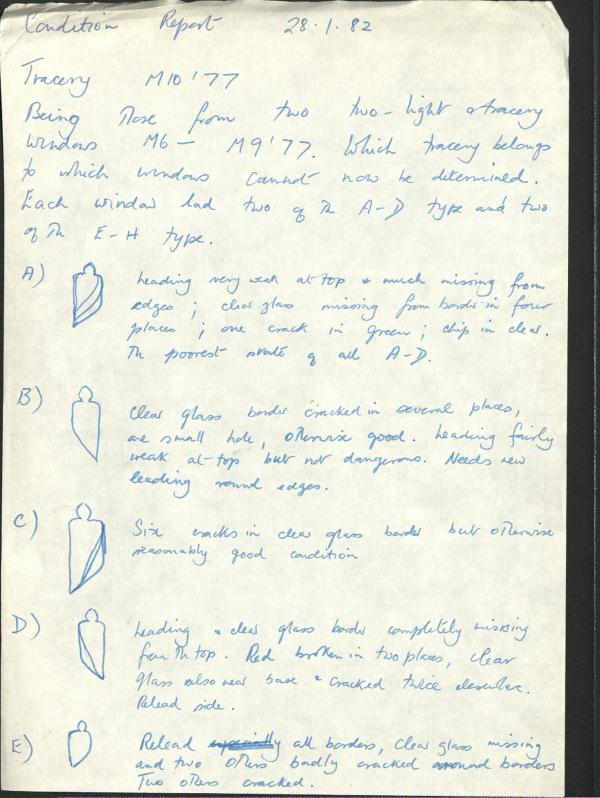 Condition Report 28.1.82
Tracery M10'77
Being those from two two-light & tracery
windows M6 – M9'77. Which tracery belongs
to which windows cannot now be determined.
Each window had two of the A-D type and two
of the E-H type.
A) Leading very weak at top & much missing from
edges; clear glass missing from border in four
places; one crack in green; chip in clear.
The poorest state of all A-D.
B) Clear glass border cracked in several places,
one small hole, otherwise good. Leading fairly
weak at top but not dangerous. Needs new
leading round edges.
C) Six cracks in clear glass border but otherwise
reasonably good condition
D) Leading & clear glass border completely missing
from the top. Red broken in two places, clear
glass also near base & cracked twice elsewhere.
Relead side.
E) Relead especially all borders, clear glass missing
and two others badly cracked around borders
Two others cracked.